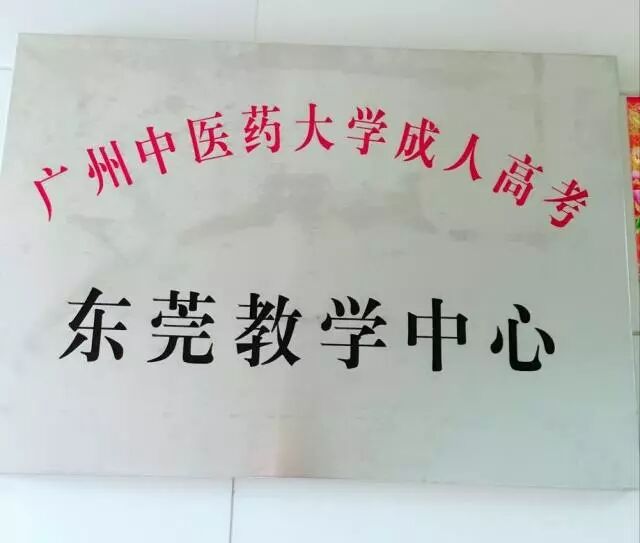 广州中医药大学成人高考
东莞教学中心